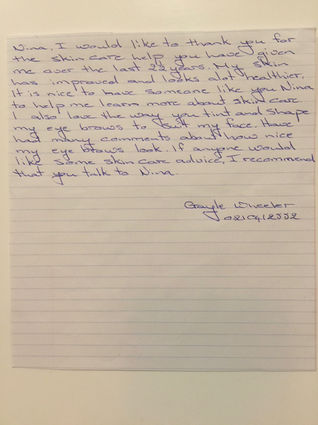 Nina, I would like to thank you for
the skin care help you have given
me over the last 22 years. My skin
has improved and looks alot healthier.
It is nice to have someone like you Nina
to help me learn more about skin care.
I also love the way you tint and shape
my eye brows to suit my face. Have
had many comments about how nice
my eye brows look. If anyone would
like some skin care advice, I recommend
that you talk to Nina.
Gayle Wheeler